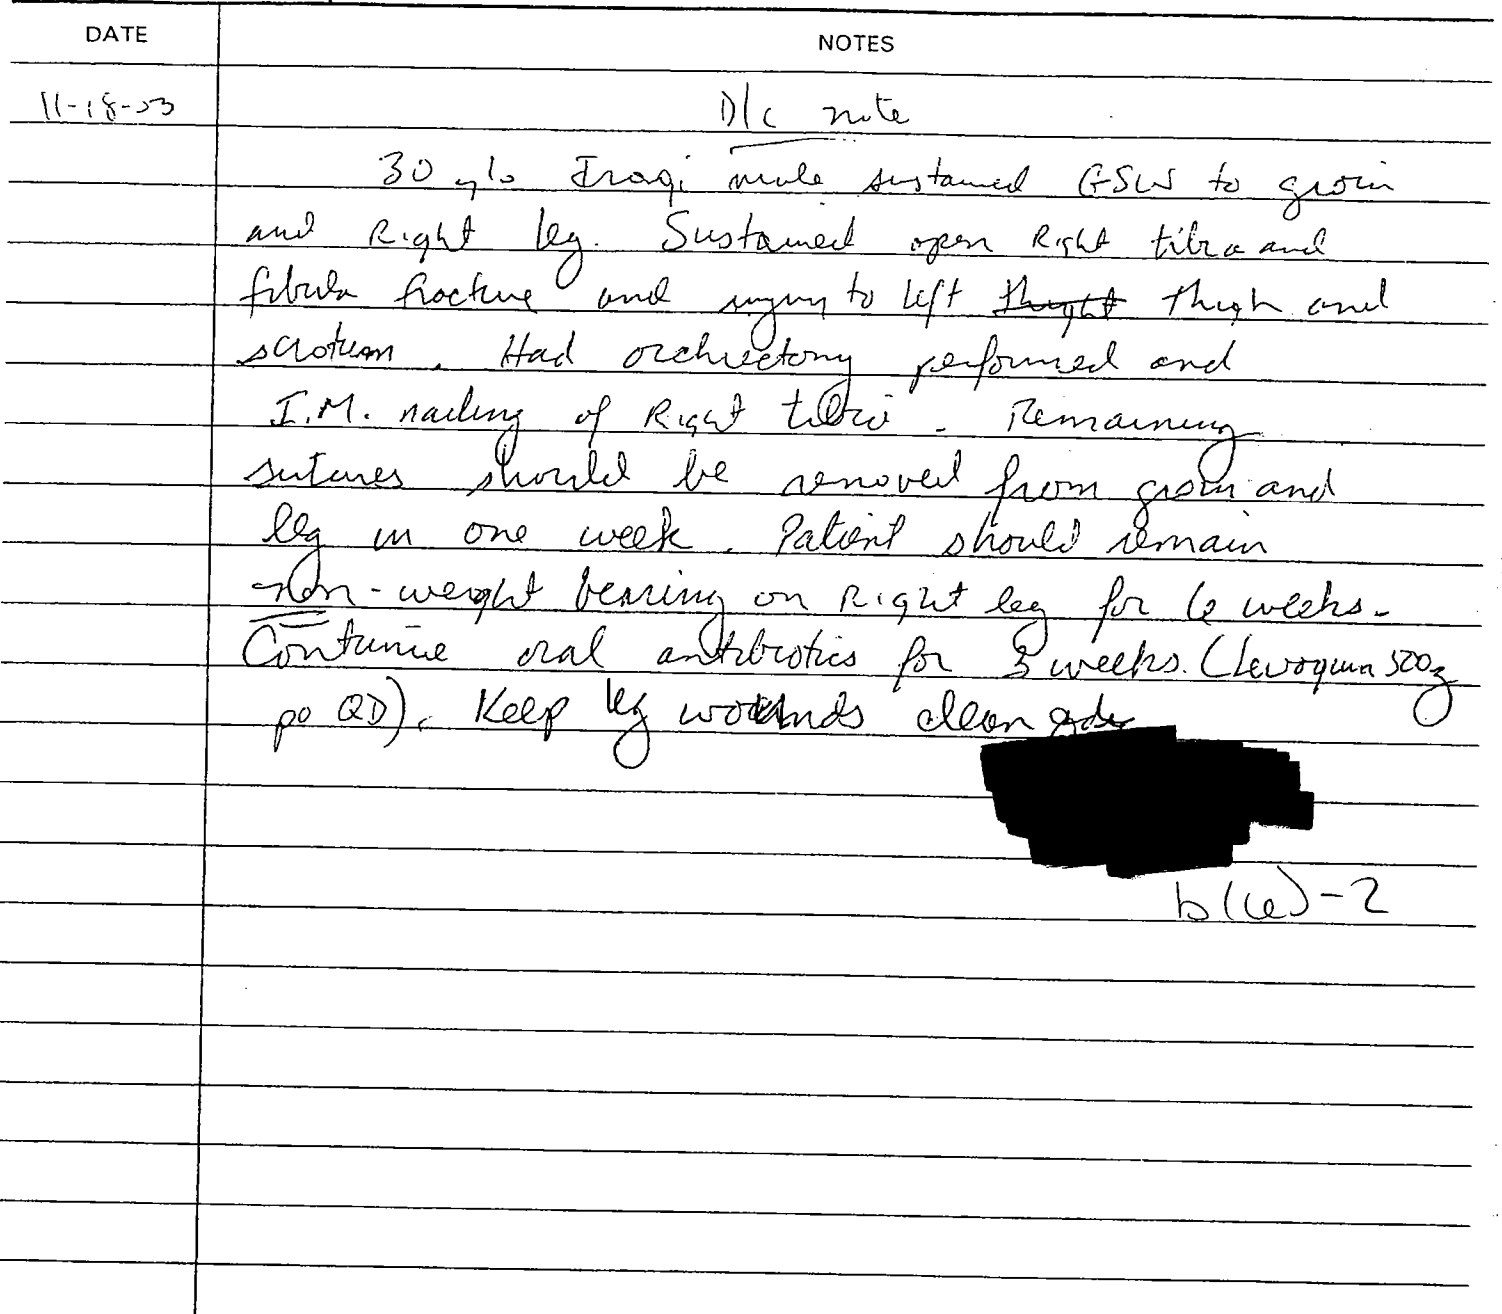 DATE NOTES
11-18-03 D/c note
30 y/o Iraqi male sustained GSW to groin
and Right leg. Sustained open Right tibia and
fibula fracture and injury to left thight Thigh and
scrotum. Had orchiectomy performed and
I.M. nailing of Right tibia. Remaining
sutures should be removed from groin and
leg in one week. Patient should remain
non-weight bearing on Right leg for 6 weeks.
Continue oral antibiotics for 3 weeks. (Levoquin 500
po QD). Keep leg wounds clean
b(6)-2